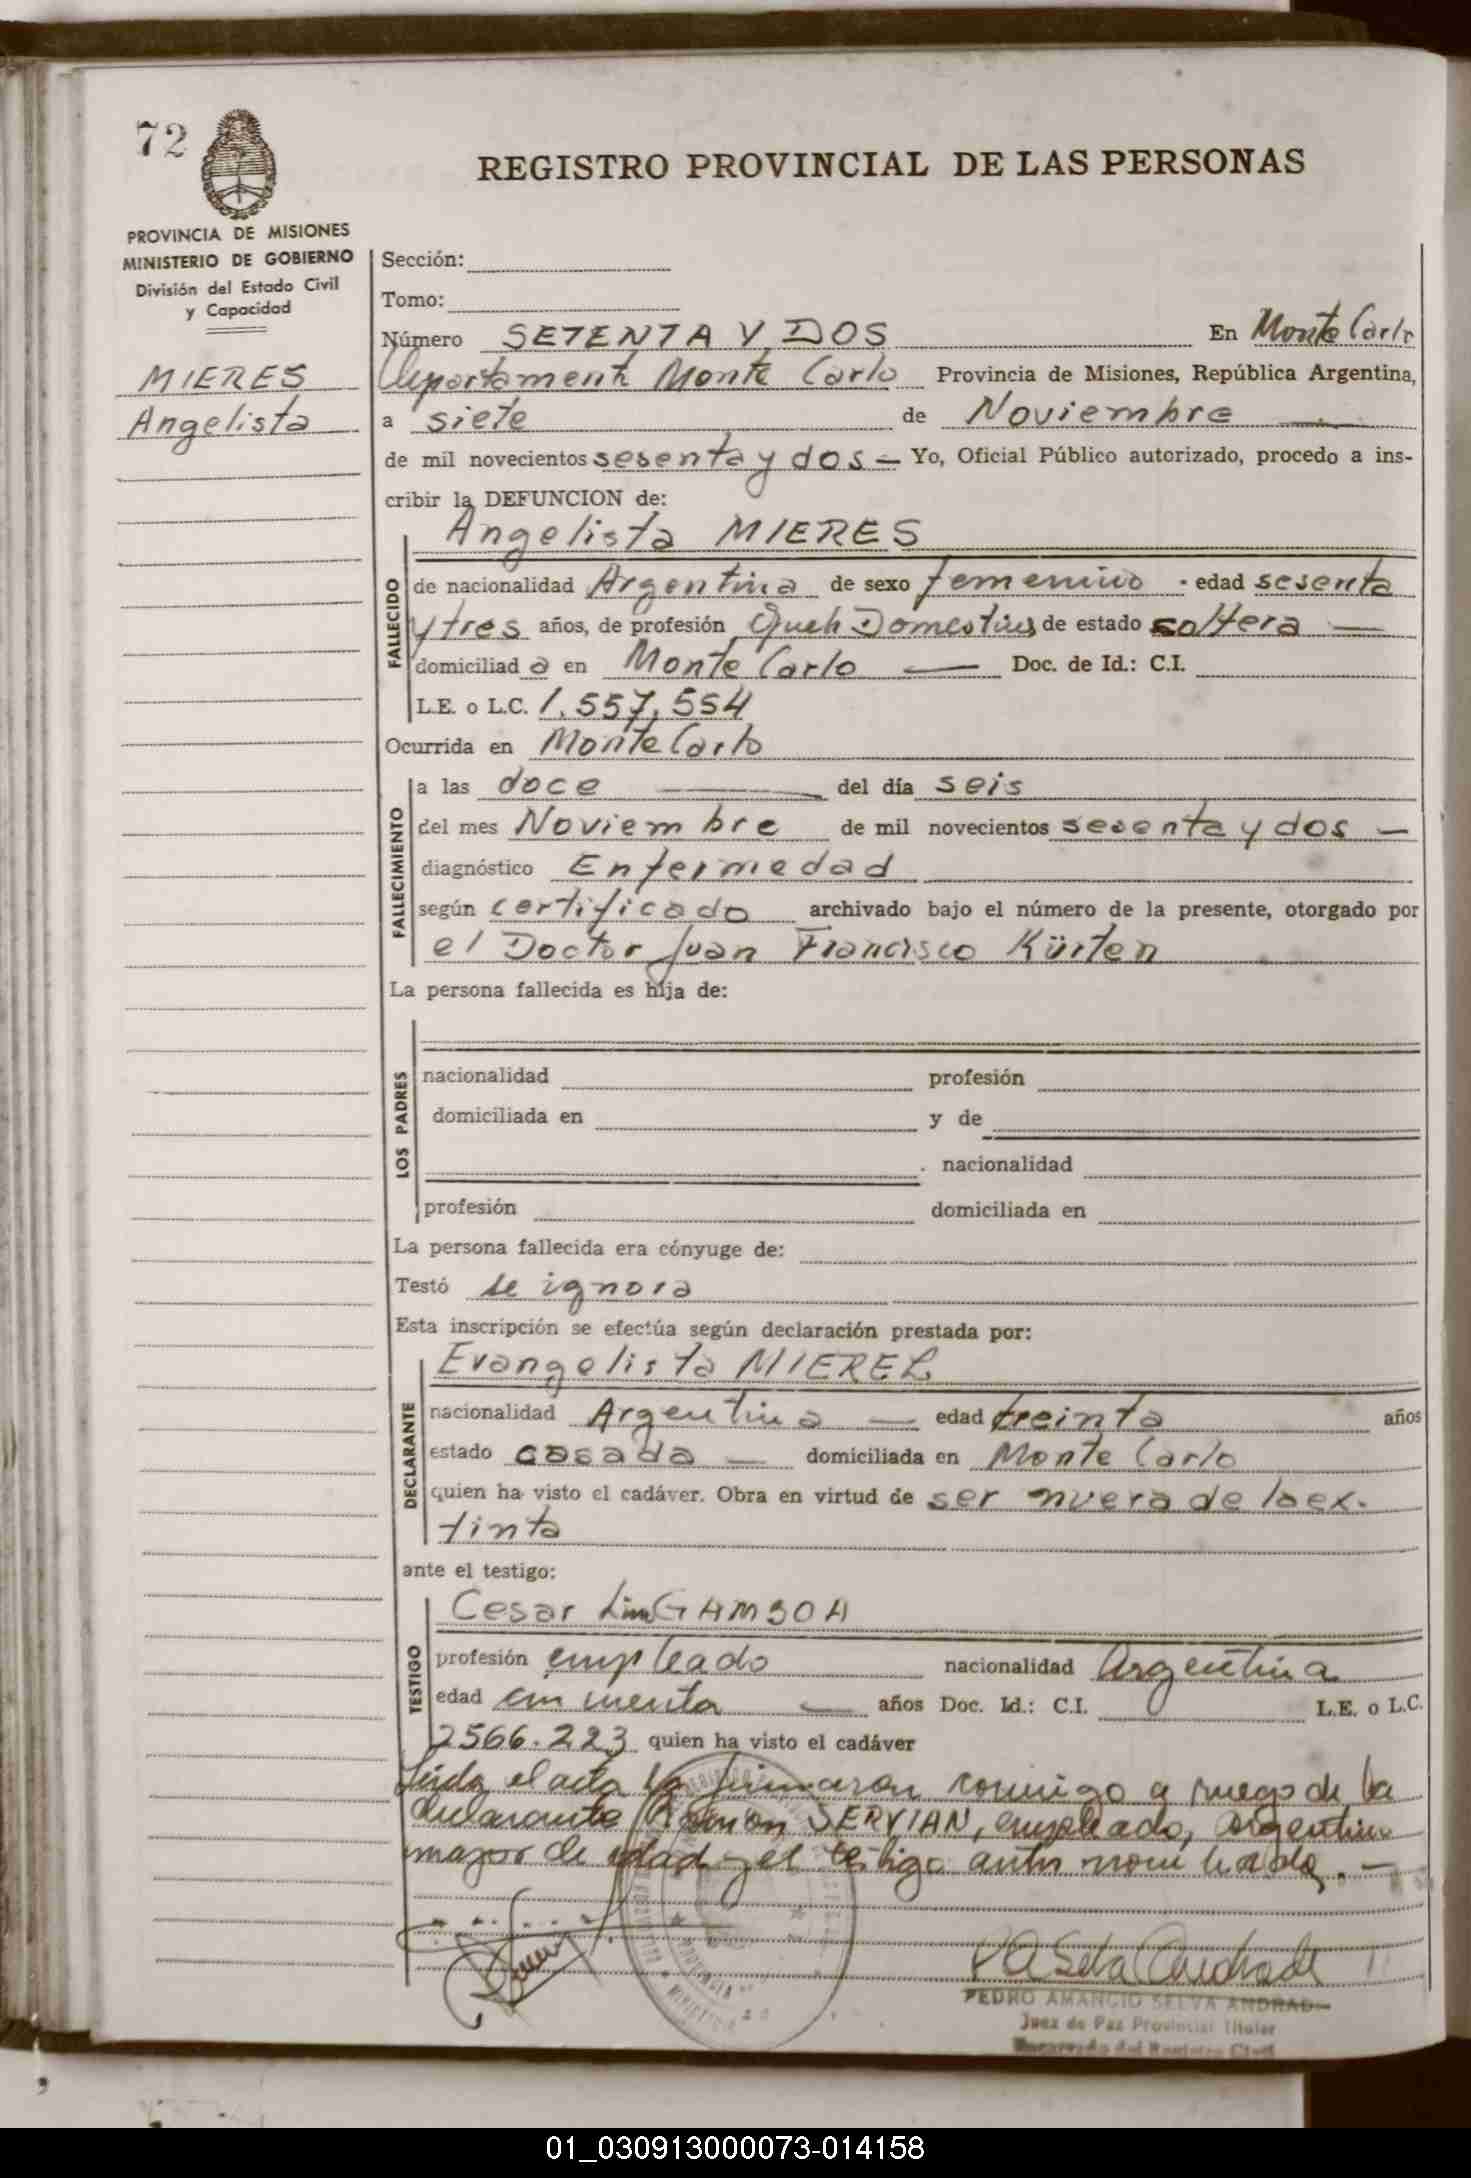 72
REGISTRO PROVINCIAL DE LAS PERSONAS
PROVINCIA DE MISIONES
MINISTERIO DE GOBIERNO
División del Estado Civil
y Capacidad
MIERES
Angelista
Sección:
Tomo:
Número SETENTA Y DOS En Monte Carlo
Departamento Monte Carlo Provincia de Misiones, República Argentina,
a siete de Noviembre
de mil novecientos sesenta y dos — Yo, Oficial Público autorizado, procedo a ins-
cribir la DEFUNCION de:
Angelista MIERES
FALLECIDO
de nacionalidad Argentina de sexo femenino edad sesenta
y tres años, de profesión Queh Domestics de estado soltera —
domiciliada en Monte Carlo — Doc. de Id.: C.I.
L.E. o L.C. 1.557.554
Ocurrida en Monte Carlo
FALLECIMIENTO
a las doce — del día seis
del mes Noviembre de mil novecientos sesenta y dos —
diagnóstico Enfermedad
según certificado archivado bajo el número de la presente, otorgado por
el Doctor Juan Francisco Kürten
La persona fallecida es hija de:
LOS PADRES
nacionalidad profesión
domiciliada en y de
nacionalidad
profesión domiciliada en
La persona fallecida era cónyuge de:
Testó se ignora
Esta inscripción se efectúa según declaración prestada por:
Evangelista MIEREL
DECLARANTE
nacionalidad Argentina — edad treinta años
estado casada — domiciliada en Monte Carlo
quien ha visto el cadáver. Obra en virtud de ser nuera de la ex-
tinta
ante el testigo:
Cesar GAMBOA
TESTIGO
profesión empleado nacionalidad Argentina
edad cincuenta — años Doc. Id.: C.I. L.E. o L.C.
2566.223 quien ha visto el cadáver
Leida el acta la firmaron conmigo a ruego de la
declarante Ramón SERVIAN, empleado, argentino
mayor de edad y el testigo antes nombrado. —
PEDRO AMANCIO SELVA ANDRADE
Juez de Paz Provincial Titular
Encargado del Registro Civil
01_030913000073-014158